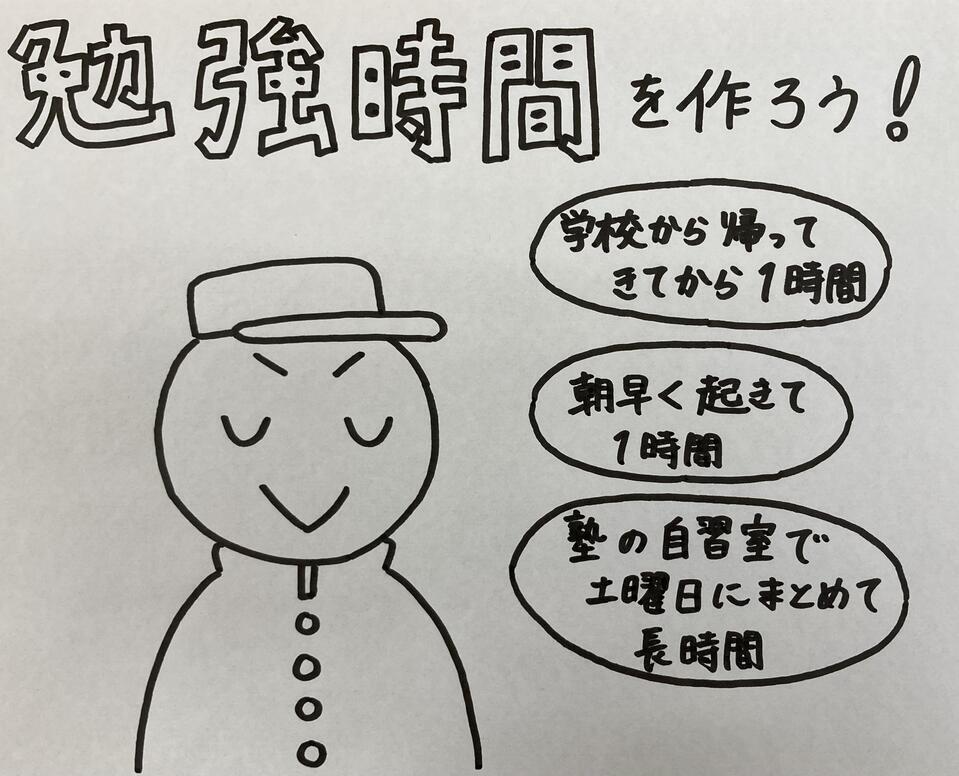 勉強時間を作ろう!
学校から帰って
きてから1時間
朝早く起きて
1時間
塾の自習室で
土曜日にまとめて
長時間